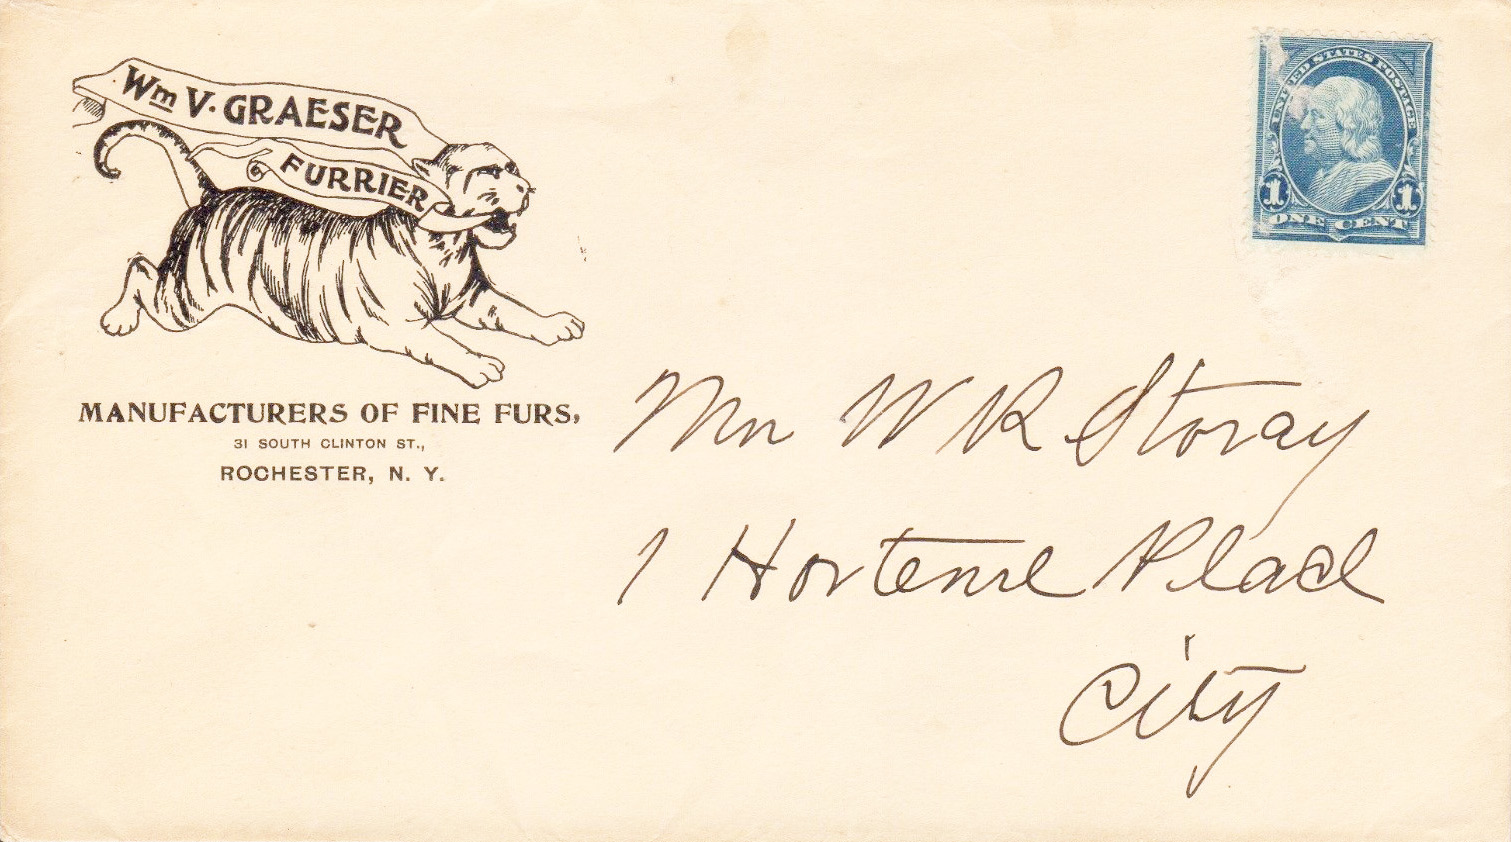 Wm V. GRAESER
FURRIER
MANUFACTURERS OF FINE FURS,
31 SOUTH CLINTON ST.,
ROCHESTER, N. Y.
UNITED STATES POSTAGE
1 1
ONE CENT
Mr W R Storay
1 Hortense Place
City